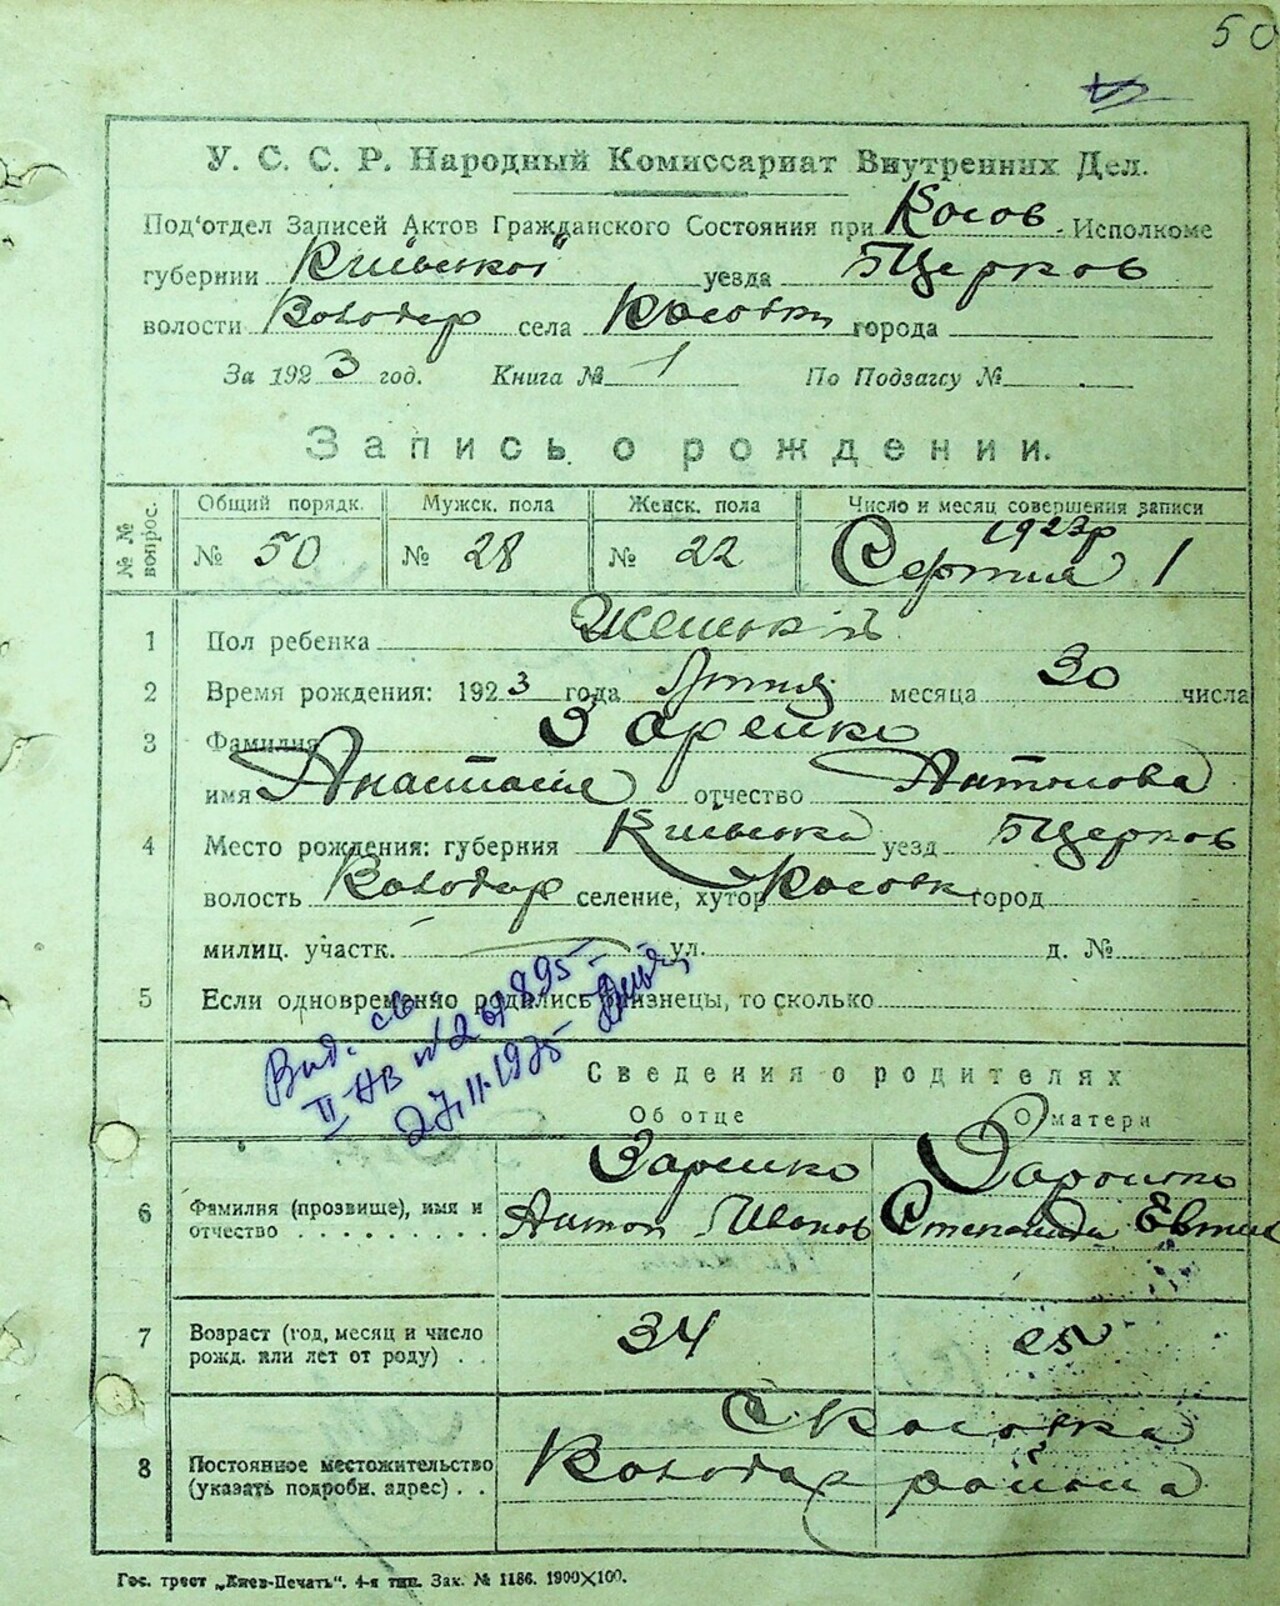 50
У. С. С. Р. Народный Комиссариат Внутренних Дел.
Под'отдел Записей Актов Гражданского Состояния при Косов. Исполкоме
губернии Київської уезда БЦерков
волости Володар села Косовки города
За 1923 год. Книга № 1 По Подзагсу №
Запись о рождении.
№ № вопрос. Общий порядк. Мужск. пола Женск. пола Число и месяц совершения записи
№ 50 № 28 № 22 1923р Серпня 1
1 Пол ребенка
2 Время рождения: 1923 года Липня месяца 30 числа
3 Фамилия Заренко
имя Анастасія отчество Антонова
4 Место рождения: губерния Київська уезд БЦерков
волость Володар селение, хутор Косовк город
милиц. участк. ул. д. №
5 Если одновременно родились близнецы, то сколько
Вид. св.
II-АВ №
27.11.1975
Сведения о родителях
Об отце О матери
6 Фамилия (прозвище), имя и отчество . . . . . . . . . .
Заренко Антон Иванов
Степанида Евтих
7 Возраст (год, месяц и число рожд. или лет от роду) . .
34 25
8 Постоянное местожительство (указать подробн. адрес) . .
С Косовка
Володар района
Гос. трест „Киев-Печать“. 4-я тип. Зак. № 1186. 1900×100.